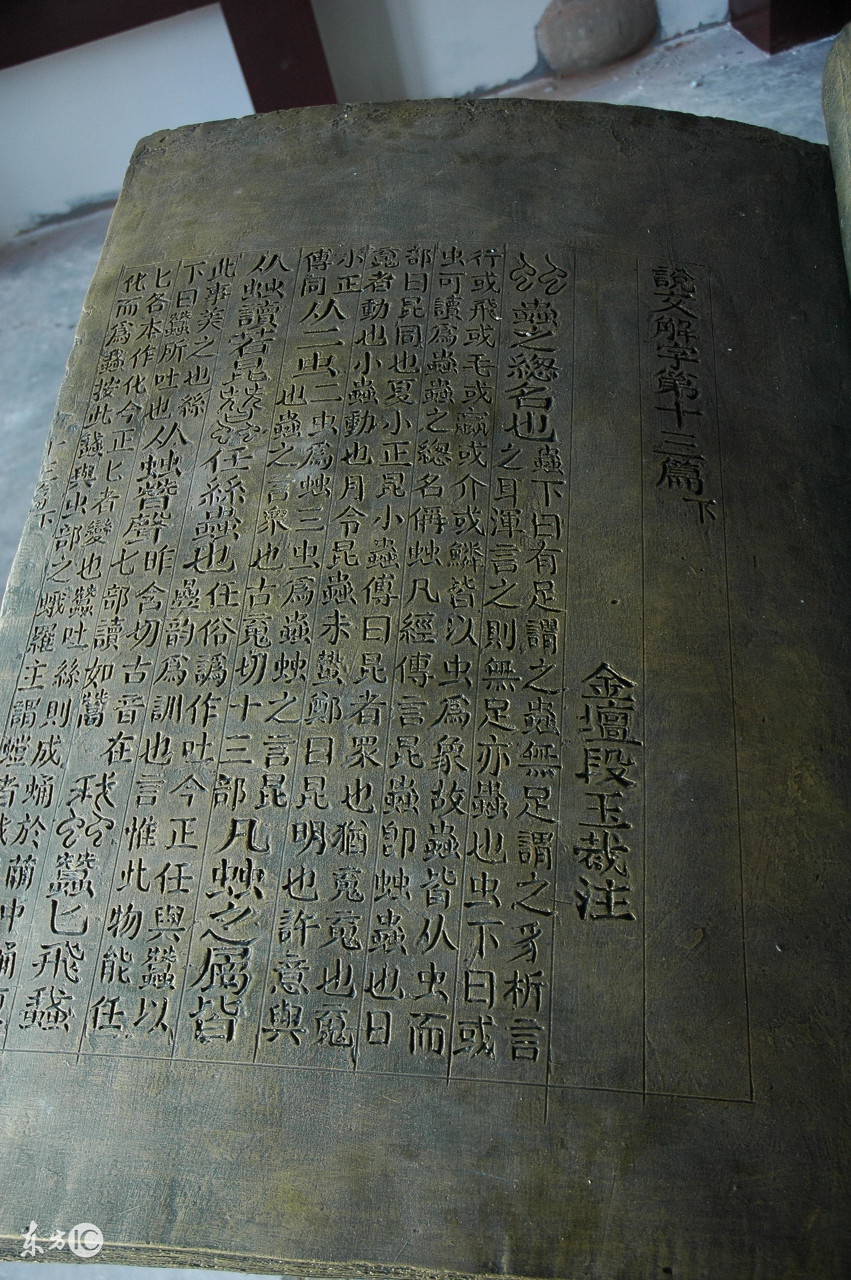 說文解字第十三篇下
金壇段玉裁注
䖵蟲之總名也蟲下曰有足謂之蟲無足謂之豸析言
之耳渾言之則無足亦蟲也虫下曰或
行或飛或毛或蠃或介或鱗皆㠯虫爲象故蟲皆从虫而
虫可讀爲蟲蟲之總名偁䖵凡經傳言昆蟲卽䖵蟲也日
部曰昆同也夏小正昆小蟲傳曰昆者眾也猶䰟䰟也䰟
䰟者動也小蟲動也月令昆蟲未蟄鄭曰昆明也許意與
小正
傳同从二虫二虫爲䖵三虫爲蟲䖵之言昆
也蟲之言衆也古䰟切十三部凡䖵之屬皆
从䖵讀若昆蠶任絲蟲也任俗譌作吐今正任與蠶以
曡韵爲訓也言惟此物能任
此事美之也絲
下曰蠶所吐也从䖵朁聲昨含切古音在
七部讀如鬵䖸蠶匕飛䖸
匕各本作化今正匕者變也蠶吐絲則成蛹於繭中蛹
化而爲䖸按此䖸與虫部之蛾羅主謂螘者
十三篇下
东方IC